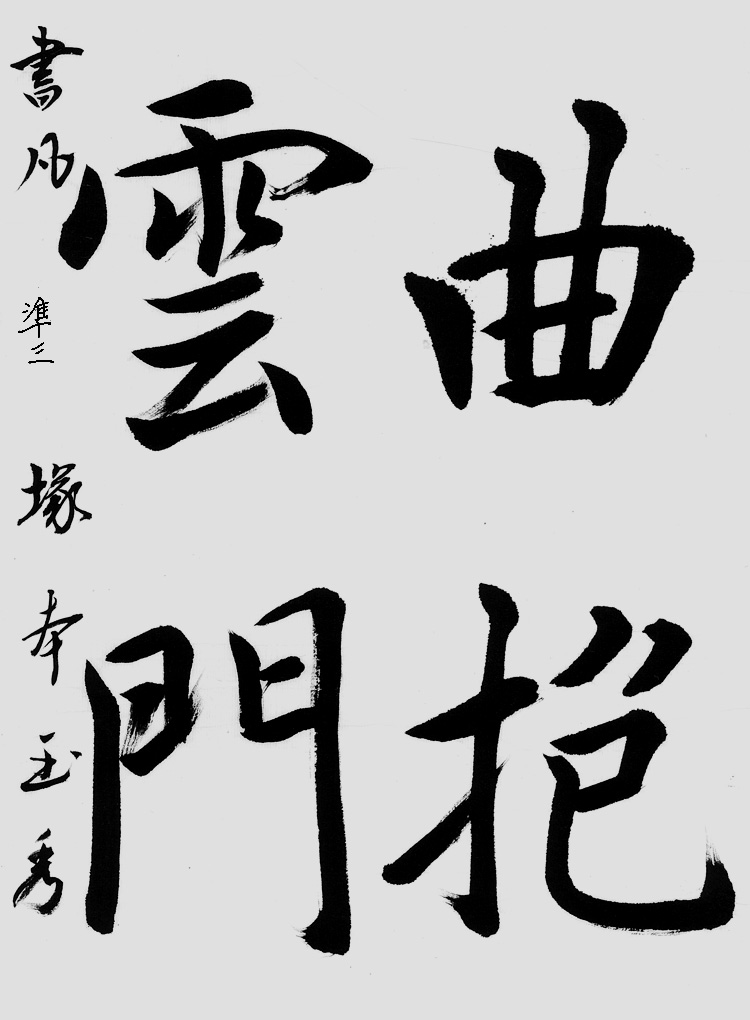 曲挹
雲門
書凡 準三 塚本玉秀